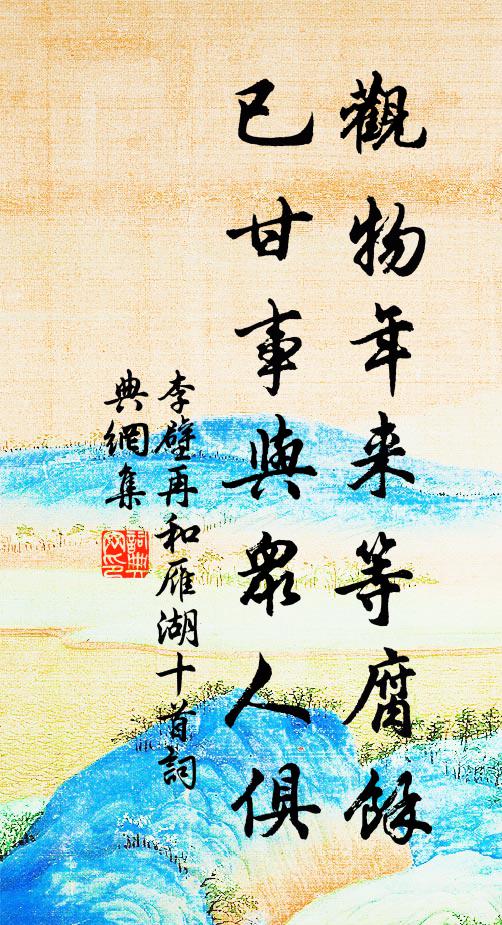 觀物年来等腐餘
已甘事與眾人俱
李壁再和雁湖十首詞
典網集
詞典網印